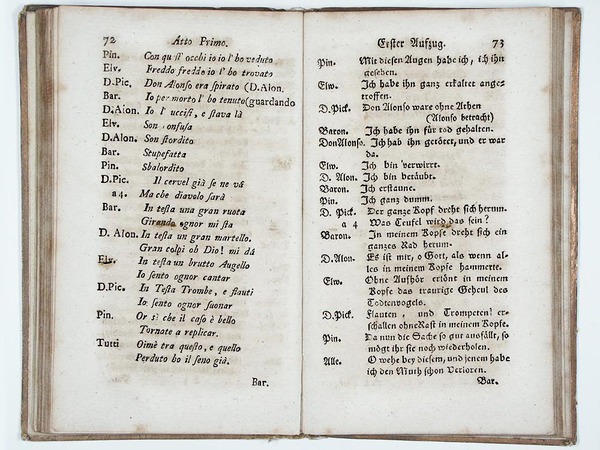 72 Atto Primo.
Pin. Con qu st' occhi io io l' ho veduto
Elv. Freddo freddo io l' ho trovato
D.Pic. Don Alonso era spirato (D.Alon.
Bar. Io per morto l' ho tenuto (guardando
D.Alon. Io l' uccisi, e stava là
Elv. Son onfusa
D.Alon. Son stordito
Bar. Stupefatta
Pin. Sbalordito
D.Pic. Il cervel già se ne vá
a 4. Ma che diavolo sará
Bar. In testa una gran ruota
Girando ognor mi sta
D. Alon. In testa un gran martello.
Gran colpi ob Dio! mi dá
Elv. In testa un brutto Augello
Io sento ognor cantar
D.Pic. In Testa Trombe, e flauti
Io sento ognor suonar
Pin. Or sì che il caso è bello
Tornate a replicar.
Tutti Oimè tra questo, e quello
Perduto ho il seno già.
Bar.
Erster Aufzug. 73
Pin. Mit diesen Augen habe ich, ich ihn
gesehen.
Elw. Ich habe ihn ganz erkaltet ange-
troffen.
D.Pick. Don Alonso ware ohne Athen
(Alonso betracht)
Baron. Ich habe ihn für tod gehalten.
DonAlonso. Ich hab ihn getötet, und er war
da.
Elw. Ich bin verwirrt.
D. Alon. Ich bin betäubt.
Baron. Ich erstaune.
Pin. Ich ganz dumm.
D. Pick. Der ganze Kopf dreht sich herum.
a 4 Was Teufel wird das sein?
Baron. In meinem Kopfe dreht sich ein
ganzes Rad herum.
D.Alon. Es ist mir, o Gott, als wenn al-
les in meinem Kopfe hammerte.
Elw. Ohne Aufhör ertönt in meinem
Kopfe das traurige Geheul des
Todtenvogels.
D.Pick. Flauten, und Trompeten! er-
schallen ohne Rast in meinem Kopfe.
Pin. Da nun die Sache so gut ausfällt, so
mögt ihr sie noch wiederholen.
Alle. O wehe bey diesem, und jenem habe
ich den Muth schon verloren.
Bar.